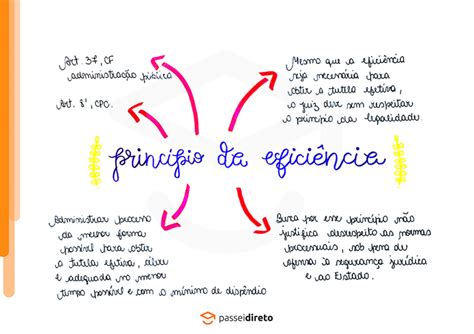 Art. 37, CF
administração pública
Art. 8º, CPC.
Mesmo que a eficiência
seja necessária para
obter a tutela efetiva,
o juiz deve sem respeitar
o princípio da legalidade
princípio da eficiência
Administrar processo
da melhor forma
possível para obter
a tutela efetiva, célere
e adequada no menor
tempo possível e com o mínimo de dispêndio
Busca por esse princípio não
justifica desrespeito as normas
processuais, sob pena de
ofensa à segurança jurídica
e ao Estado.
passeidireto